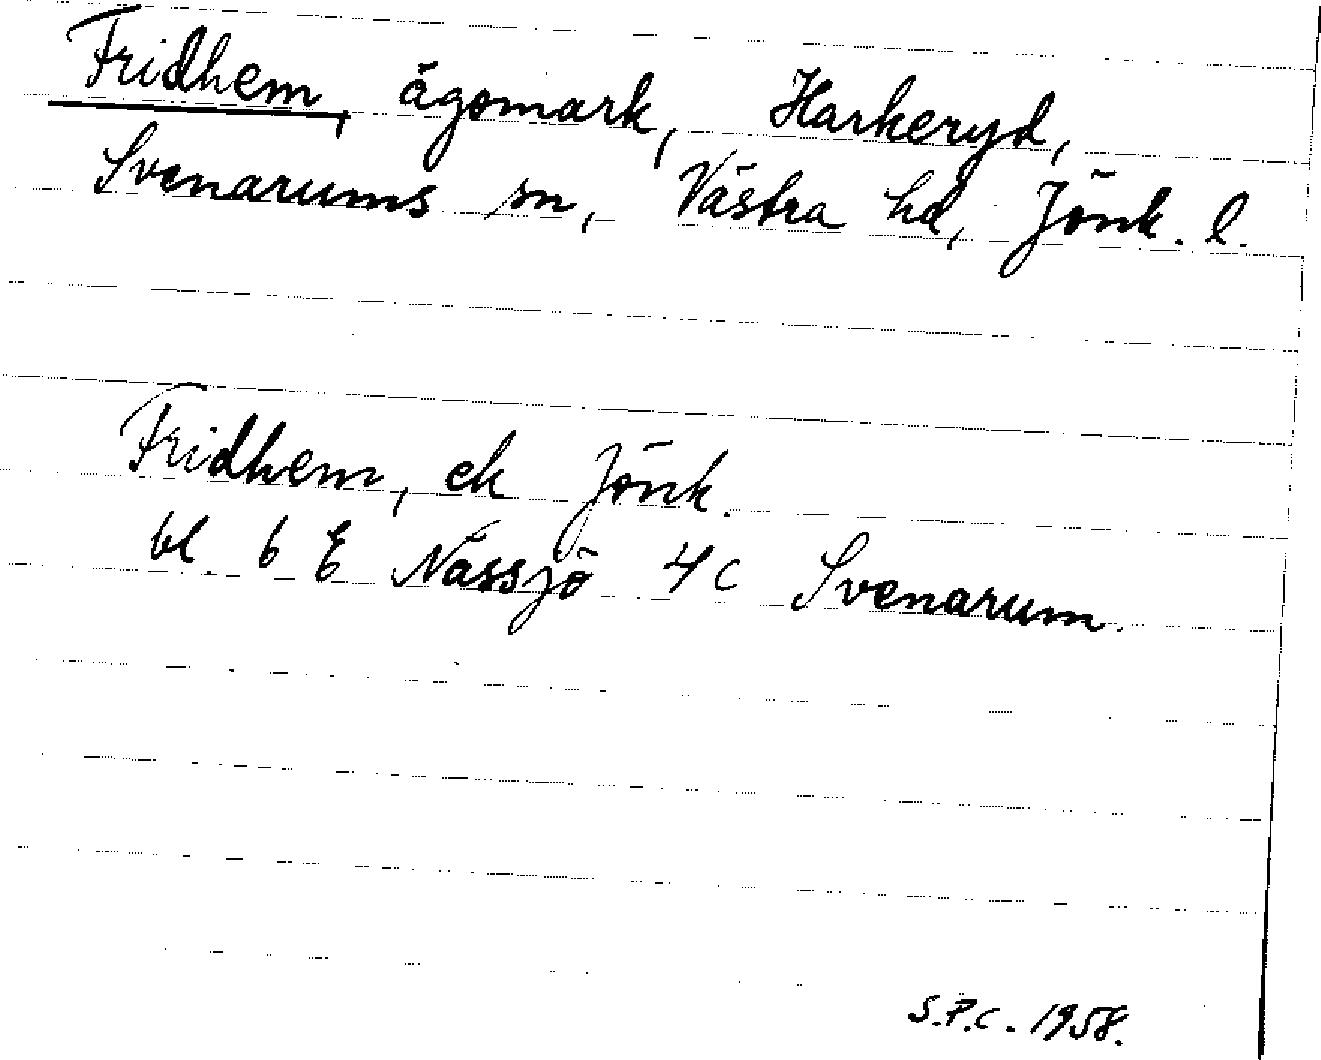 Fridhem, ägomark, Harkeryd,
Svenarums sn, Västra hd, Jönk. l.
Fridhem, ek Jönk.
bl. 6 E Nässjö 4c Svenarum.
S.P.C. 1958.